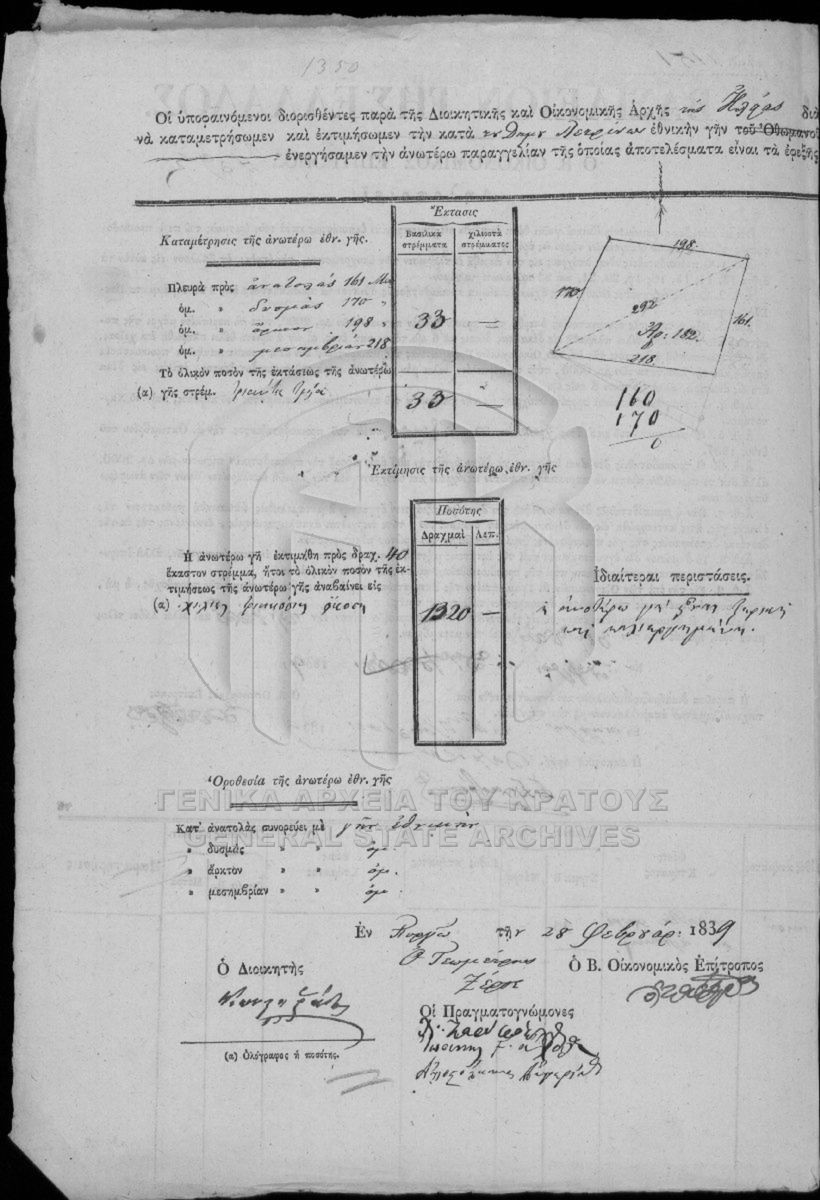 1350
Οἱ ὑποφαινόμενοι διορισθέντες παρὰ τῆς Διοικητικῆς καὶ Οἰκονομικῆς Ἀρχῆς τῆς Ἠλείας διὰ
νὰ καταμετρήσωμεν καὶ ἐκτιμήσωμεν τὴν κατὰ Λετρίνων ἐθνικὴν γῆν τοῦ Ὀθωμανοῦ
ἐνεργήσαμεν τὴν ἀνωτέρω παραγγελίαν τῆς ὁποίας ἀποτελέσματα εἶναι τὰ ἑρεξῆς
Καταμέτρησις τῆς ἀνωτέρω ἐθν. γῆς.
Ἔκτασις
Βασιλικὰ στρέμματα
χιλιοστὰ στρέμματος
Πλευρὰ πρὸς ἀνατολὰς 161
ὁμ. » δυσμὰς 170 "
ὁμ. » ἄρκτον 198 "
ὁμ. » μεσημβρίαν 218
33 —
Τὸ ὁλικὸν ποσὸν τῆς ἐκτάσεως τῆς ἀνωτέρω
(α) γῆς στρέμ. τριάντα τρία
33 —
198
170
292
161
Ἀρ: 182.
218
160
170
0
Ἐκτίμησις τῆς ἀνωτέρω ἐθν. γῆς
Ποσότης
Δραχμαὶ Λεπ.
Ἡ ἀνωτέρω γῆ ἐκτιμήθη πρὸς δραχ. 40
ἕκαστον στρέμμα, ἤτοι τὸ ὁλικὸν ποσὸν τῆς ἐκ-
τιμήσεως τῆς ἀνωτέρω γῆς ἀναβαίνει εἰς
(α) χίλιας τριακόσιας εἴκοσι
1320 —
Ἰδιαίτεραι περιστάσεις.
ἡ ἀνωτέρω γῆ εἶναι ξηρικὴ
καὶ καλλιεργημένη.
Ὁροθεσία τῆς ἀνωτέρω ἐθν. γῆς
ΓΕΝΙΚΑ ΑΡΧΕΙΑ ΤΟΥ ΚΡΑΤΟΥΣ
GENERAL STATE ARCHIVES
Κατ' ἀνατολὰς συνορεύει μὲ γῆν ἐθνικὴν
» δυσμὰς » » ὁμ.
» ἄρκτον » » ὁμ.
» μεσημβρίαν » » ὁμ.
Ἐν Πύργῳ τὴν 28 Φεβρουάρ: 1839
Ὁ Διοικητὴς
Ὁ Γεωμέτρης
Ὁ Β. Οἰκονομικὸς Ἐπίτροπος
Οἱ Πραγματογνώμονες
(α) Ὁλόγραφος ἡ ποσότης.